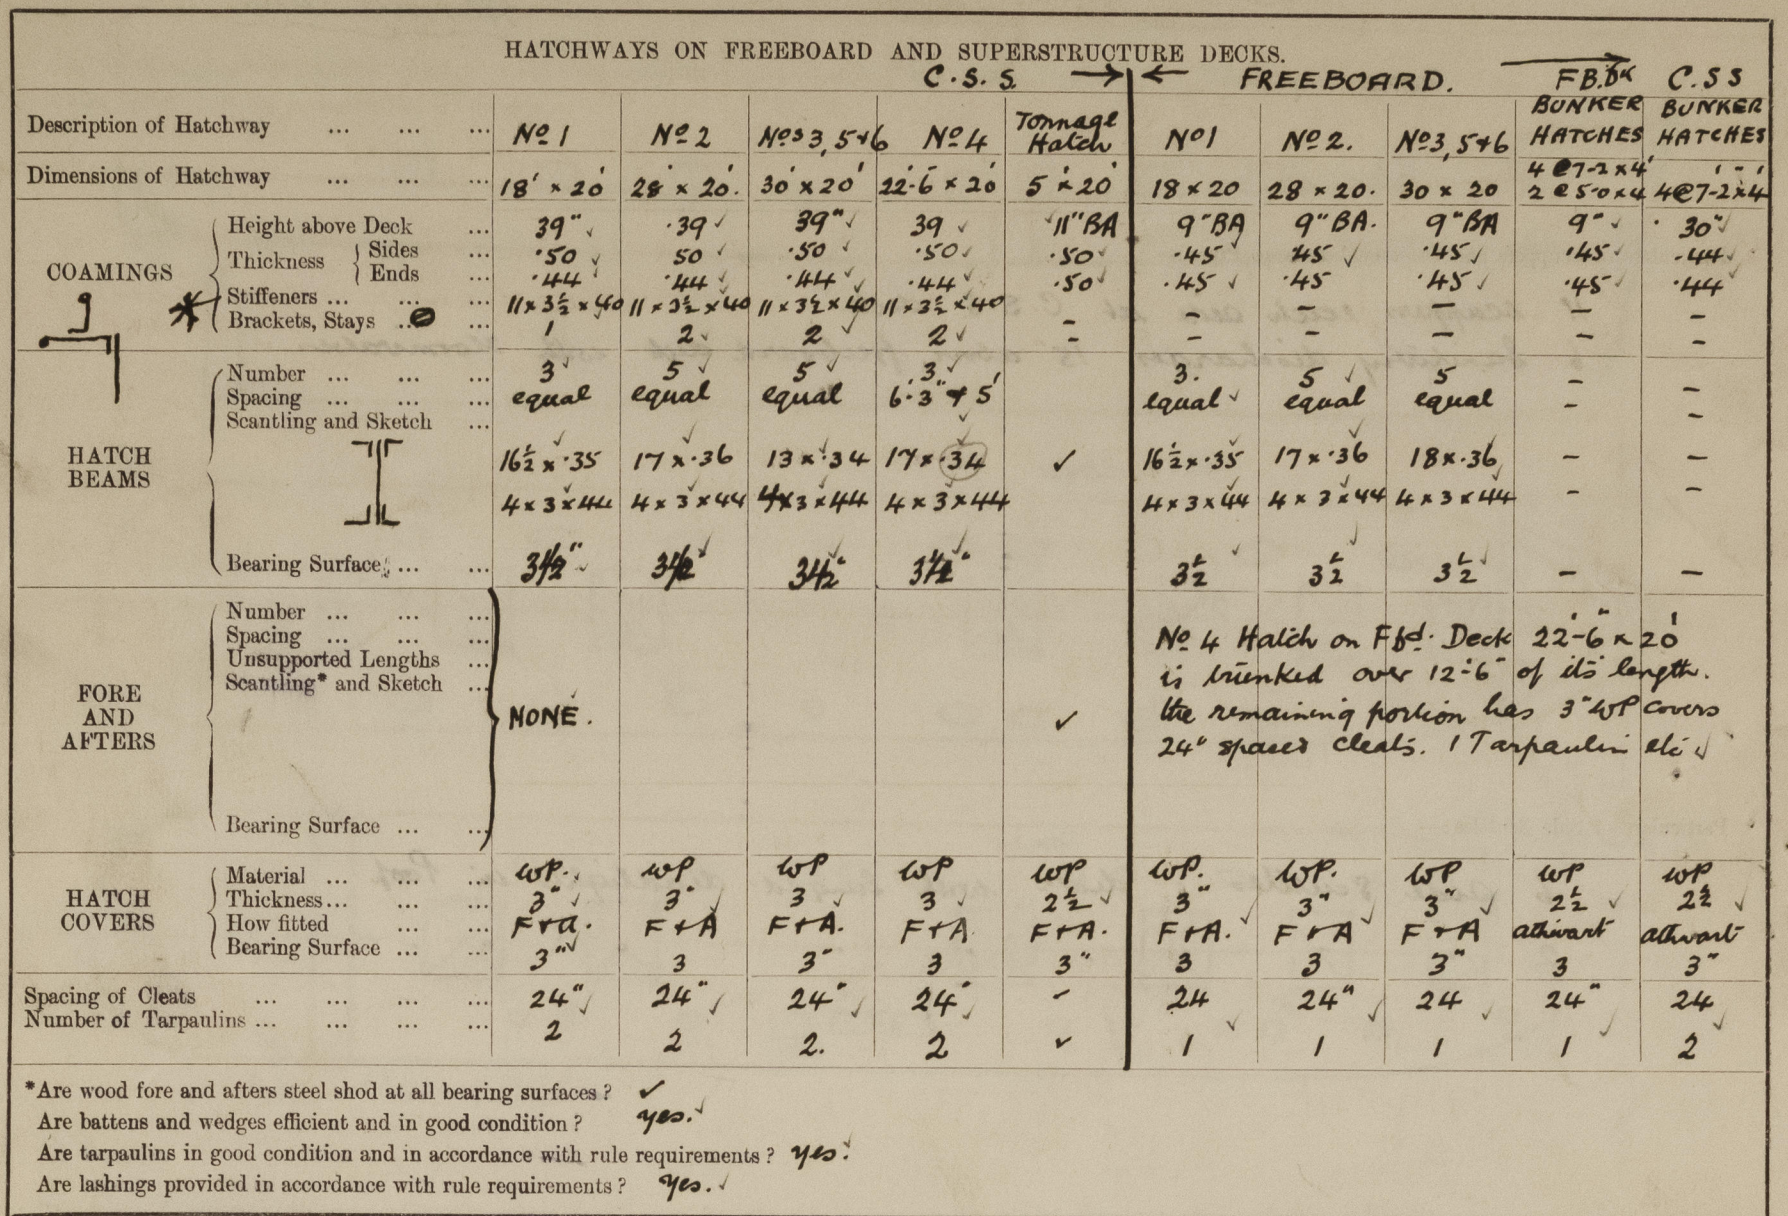 HATCHWAYS ON FREEBOARD AND SUPERSTRUCTURE DECKS.
C.S.S. → ← FREEBOARD. → FB.Dk C.SS
Description of Hatchway ... ... ... No 1 No 2 Nos 3, 5+6 No 4 Tonnage Hatch No 1 No 2. No 3, 5+6 BUNKER HATCHES BUNKER HATCHES
Dimensions of Hatchway ... ... ... 18' × 20' 28' × 20'. 30' × 20' 22'-6" × 20' 5' × 20' 18 × 20 28 × 20. 30 × 20 4 @ 7-2 × 4' 2 @ 5-0 × 4 4 @ 7'-2" × 4'
COAMINGS
Height above Deck ... 39" 39 39" 39 11" BA 9" BA 9" BA. 9" BA 9" 30"
Thickness { Sides ... .50 50 .50 .50 .50 .45 .45 .45 .45 .44
Ends ... .44 .44 .44 .44 .50 .45 .45 .45 .45 .44
Stiffeners ... ... ... 11 × 3½ × 40 11 × 3½ × 40 11 × 3½ × 40 11 × 3½ × 40 – – – – – –
Brackets, Stays ... 1 2 2 2 – – – – – –
HATCH BEAMS
Number ... ... ... 3 5 5 3 3. 5 5 – –
Spacing ... ... ... equal equal equal 6'-3" + 5' equal equal equal – –
Scantling and Sketch ...
16½ × .35 17 × .36 13 × .34 17 × .34 ✓ 16½ × .35 17 × .36 18 × .36 – –
4 × 3 × 44 4 × 3 × 44 4 × 3 × 44 4 × 3 × 44 4 × 3 × 44 4 × 3 × 44 4 × 3 × 44 – –
Bearing Surface ... ... 3½" 3½" 3½" 3½" 3½ 3½ 3½ – –
FORE AND AFTERS
Number ... ... ...
Spacing ... ... ...
Unsupported Lengths ...
Scantling* and Sketch ...
NONE. ✓
No 4 Hatch on Fbd. Deck 22'-6" × 20'
is trunked over 12'-6" of its length.
the remaining portion has 3" WP covers
24" spaced cleats. 1 Tarpaulin etc
Bearing Surface ... ...
HATCH COVERS
Material ... ... ... WP. WP WP WP WP WP. WP. WP WP WP
Thickness ... ... ... 3" 3" 3 3 2½ 3" 3" 3" 2½ 2½
How fitted ... ... F+A. F+A F+A. F+A F+A. F+A. F+A F+A athwart athwart
Bearing Surface ... ... 3" 3 3" 3 3" 3 3 3" 3 3"
Spacing of Cleats ... ... ... ... 24" 24" 24" 24" – 24 24" 24 24" 24
Number of Tarpaulins ... ... ... ... 2 2 2. 2 ✓ 1 1 1 1 2
*Are wood fore and afters steel shod at all bearing surfaces? ✓
Are battens and wedges efficient and in good condition? yes.
Are tarpaulins in good condition and in accordance with rule requirements? yes.
Are lashings provided in accordance with rule requirements? yes.